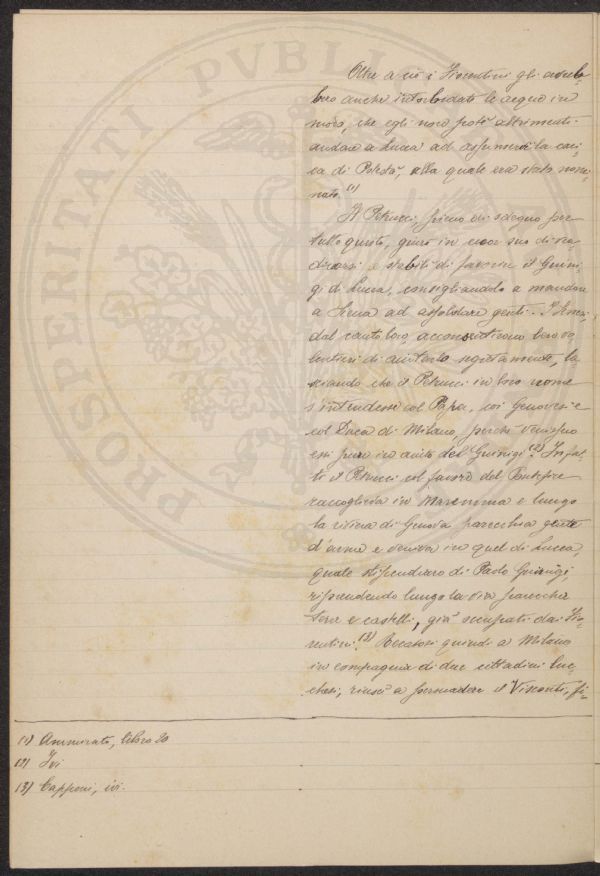 Oltre a ciò i Fiorentini gli avreb-
bero anche intorbidate le acque in
modo, che egli non potè altrimenti
andare a Lucca ad assumervi la cari-
ca di Potestà, alla quale era stato nomi-
nato. (1)
Il Petrucci, pieno di sdegno per
tutto questo, giurò in cuor suo di ven-
dicarsi e stabilì di favorire il Guini-
gi di Lucca, consigliandolo a mandare
a Siena ad assoldare genti. I Senesi,
dal canto loro, acconsentirono ben vo-
lentieri di aiutarlo segretamente, la-
sciando che il Petrucci in loro nome
s'intendesse col Papa, coi Genovesi e
col Duca di Milano, perchè venissero
essi pure in aiuto del Guinigi. (2) Infat-
ti il Petrucci col favore del Pontefice
raccoglieva in Maremma e lungo
la riviera di Genova parecchia gente
d'arme e veniva in quel di Lucca,
quale stipendiario di Paolo Guinigi,
riprendendo lungo la via parecchie
terre e castelli, già occupati dai Fio-
rentini. (3) Recatosi quindi a Milano
in compagnia di due cittadini luc-
chesi, riuscì a persuadere il Visconti, fi-
(1) Ammirato, libro 20
(2) Ivi
(3) Capponi, ivi.
PROSPERITATI PVBLIC